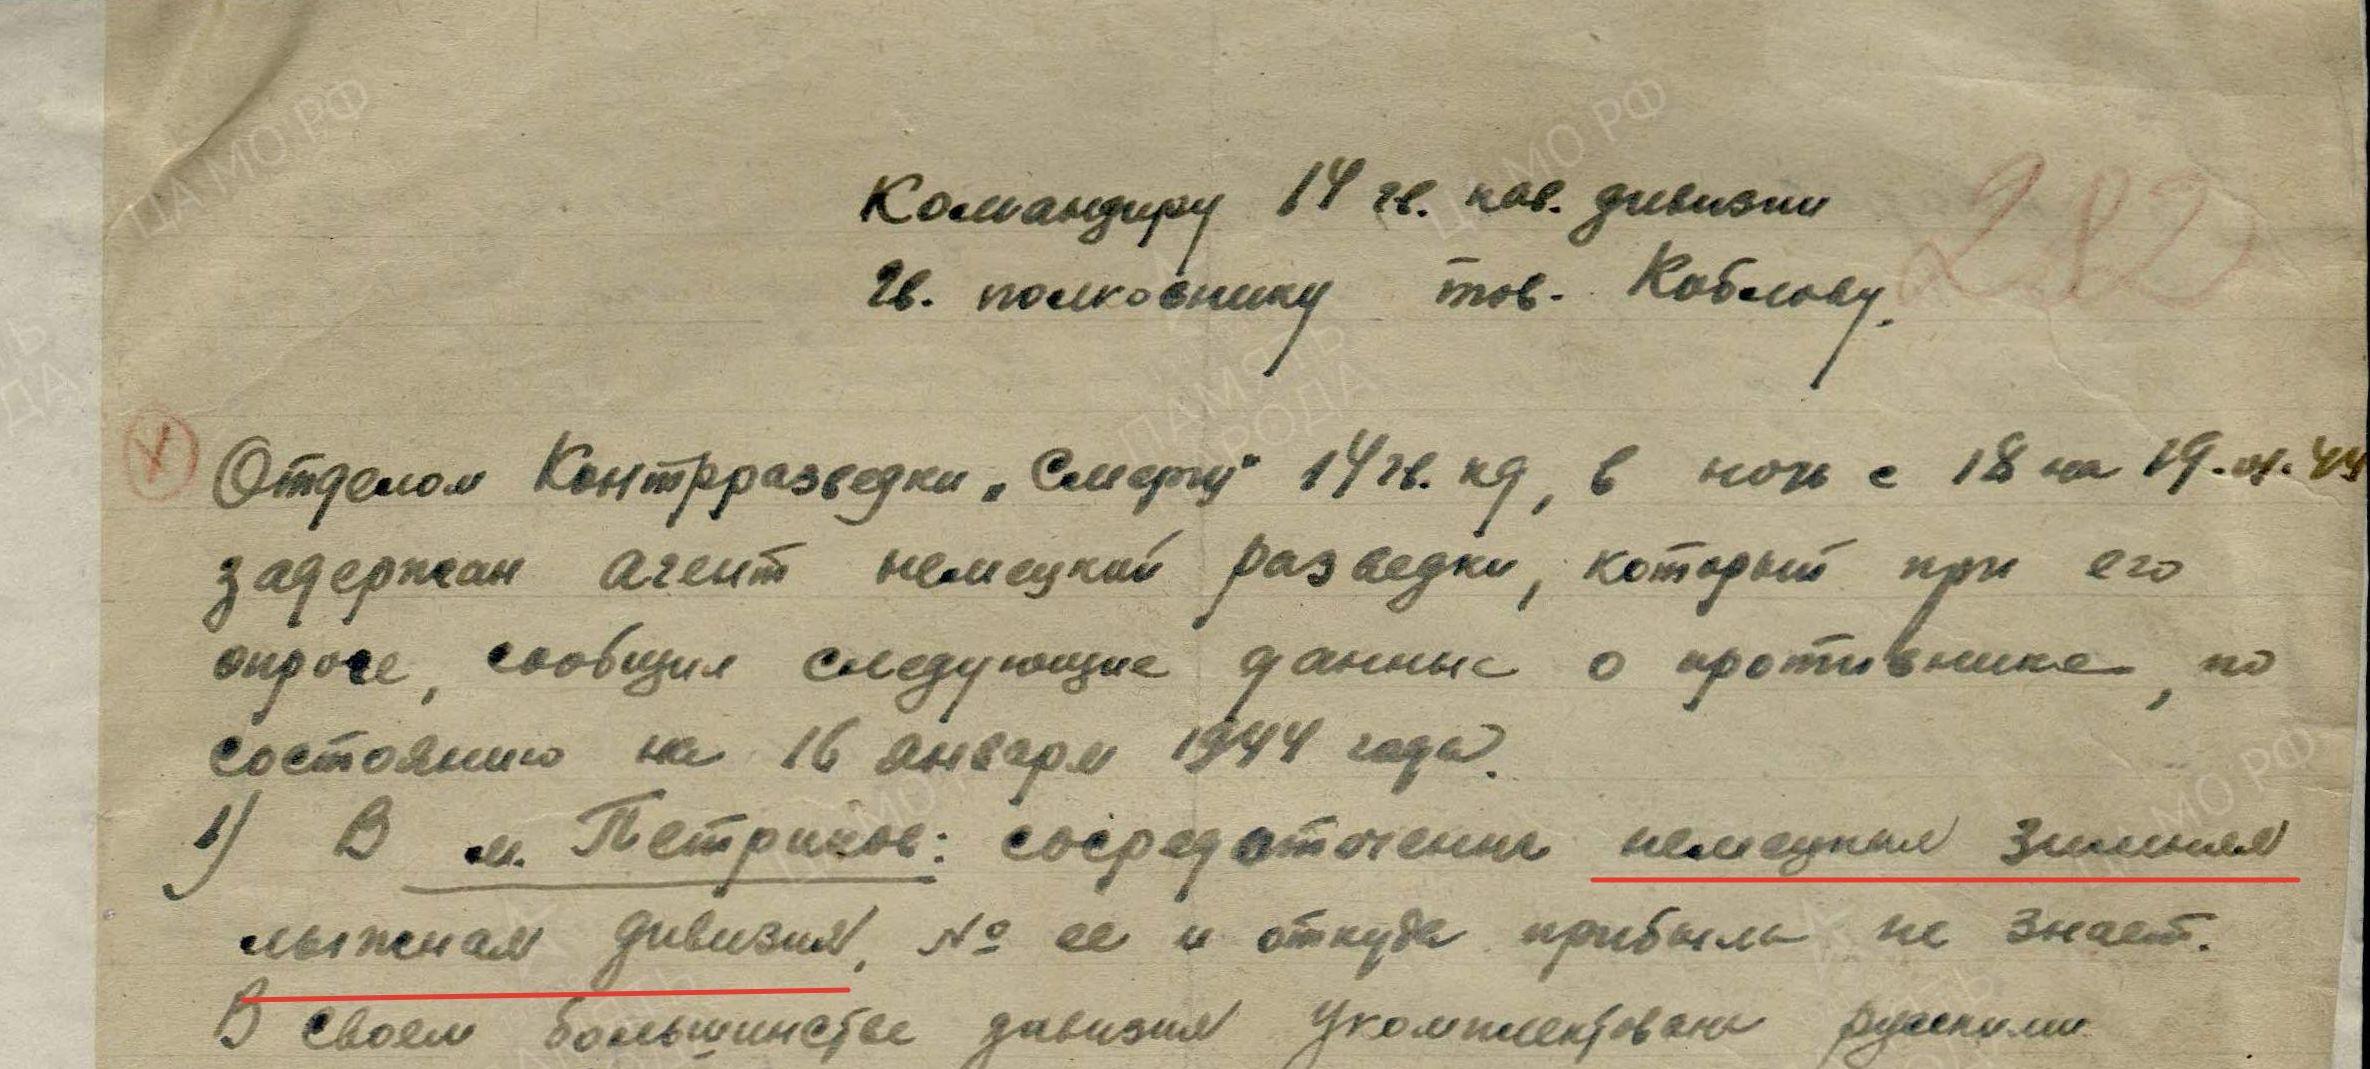 Командиру 14 гв. кав. дивизии
282
Гв. полковнику тов. Коблову.
Отделом Контрразведки „Смерш" 14 гв. кд, в ночь с 18 на 19.01.44
задержан агент немецкой разведки, который при его
опросе, сообщил следующие данные о противнике, по
состоянию на 16 января 1944 года.
1) В м. Петриков: сосредоточена немецкая зимняя
лыжная дивизия, № ее и откуда прибыла не знает.
В своем большинстве дивизия укомплектована русскими
ЦА МО РФ
ЦА МО РФ
ПАМЯТЬ
НАРОДА
ЦА МО РФ